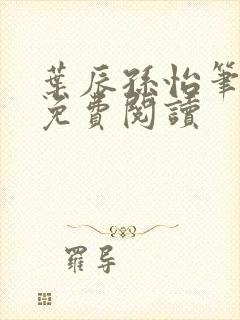 葉辰孫怡筆
免費閱讀
羅导